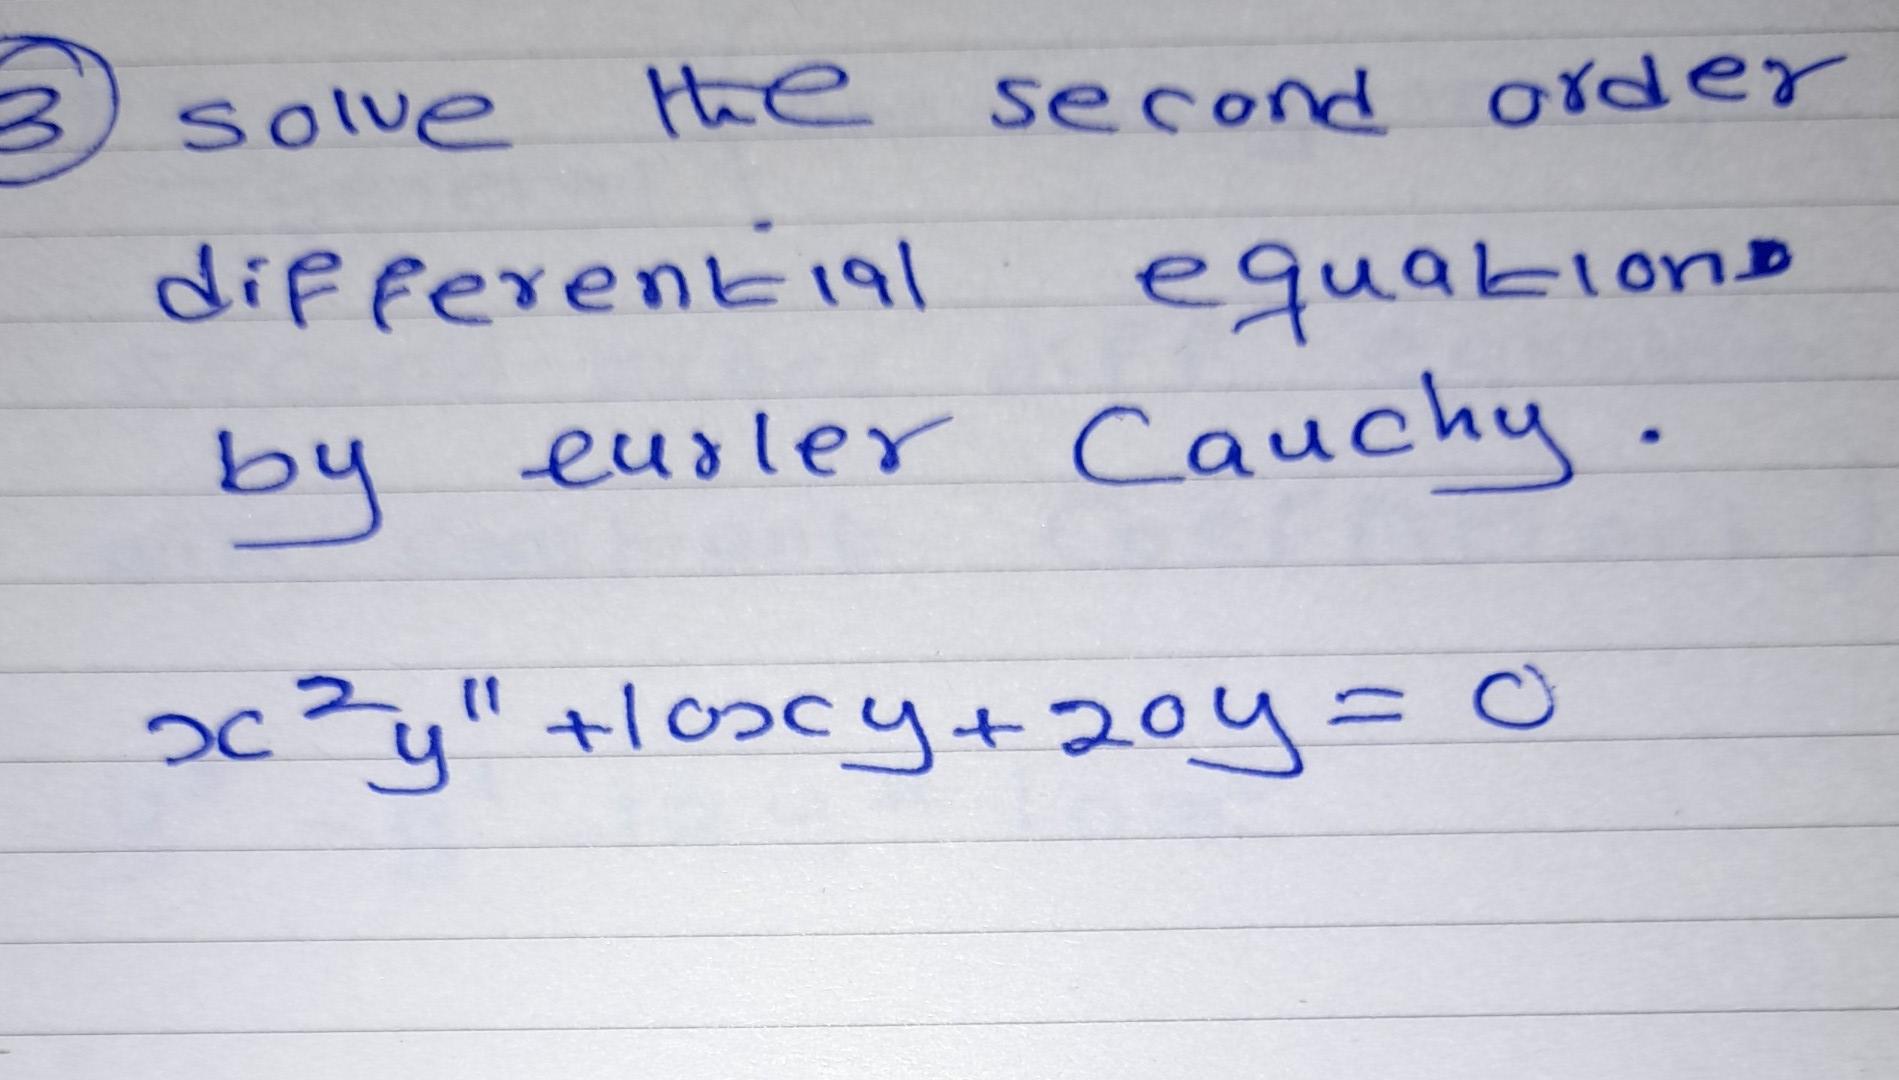 3 solve the second order
differential equations
by eurler Cauchy.
x²y" + 10xy + 20y = 0